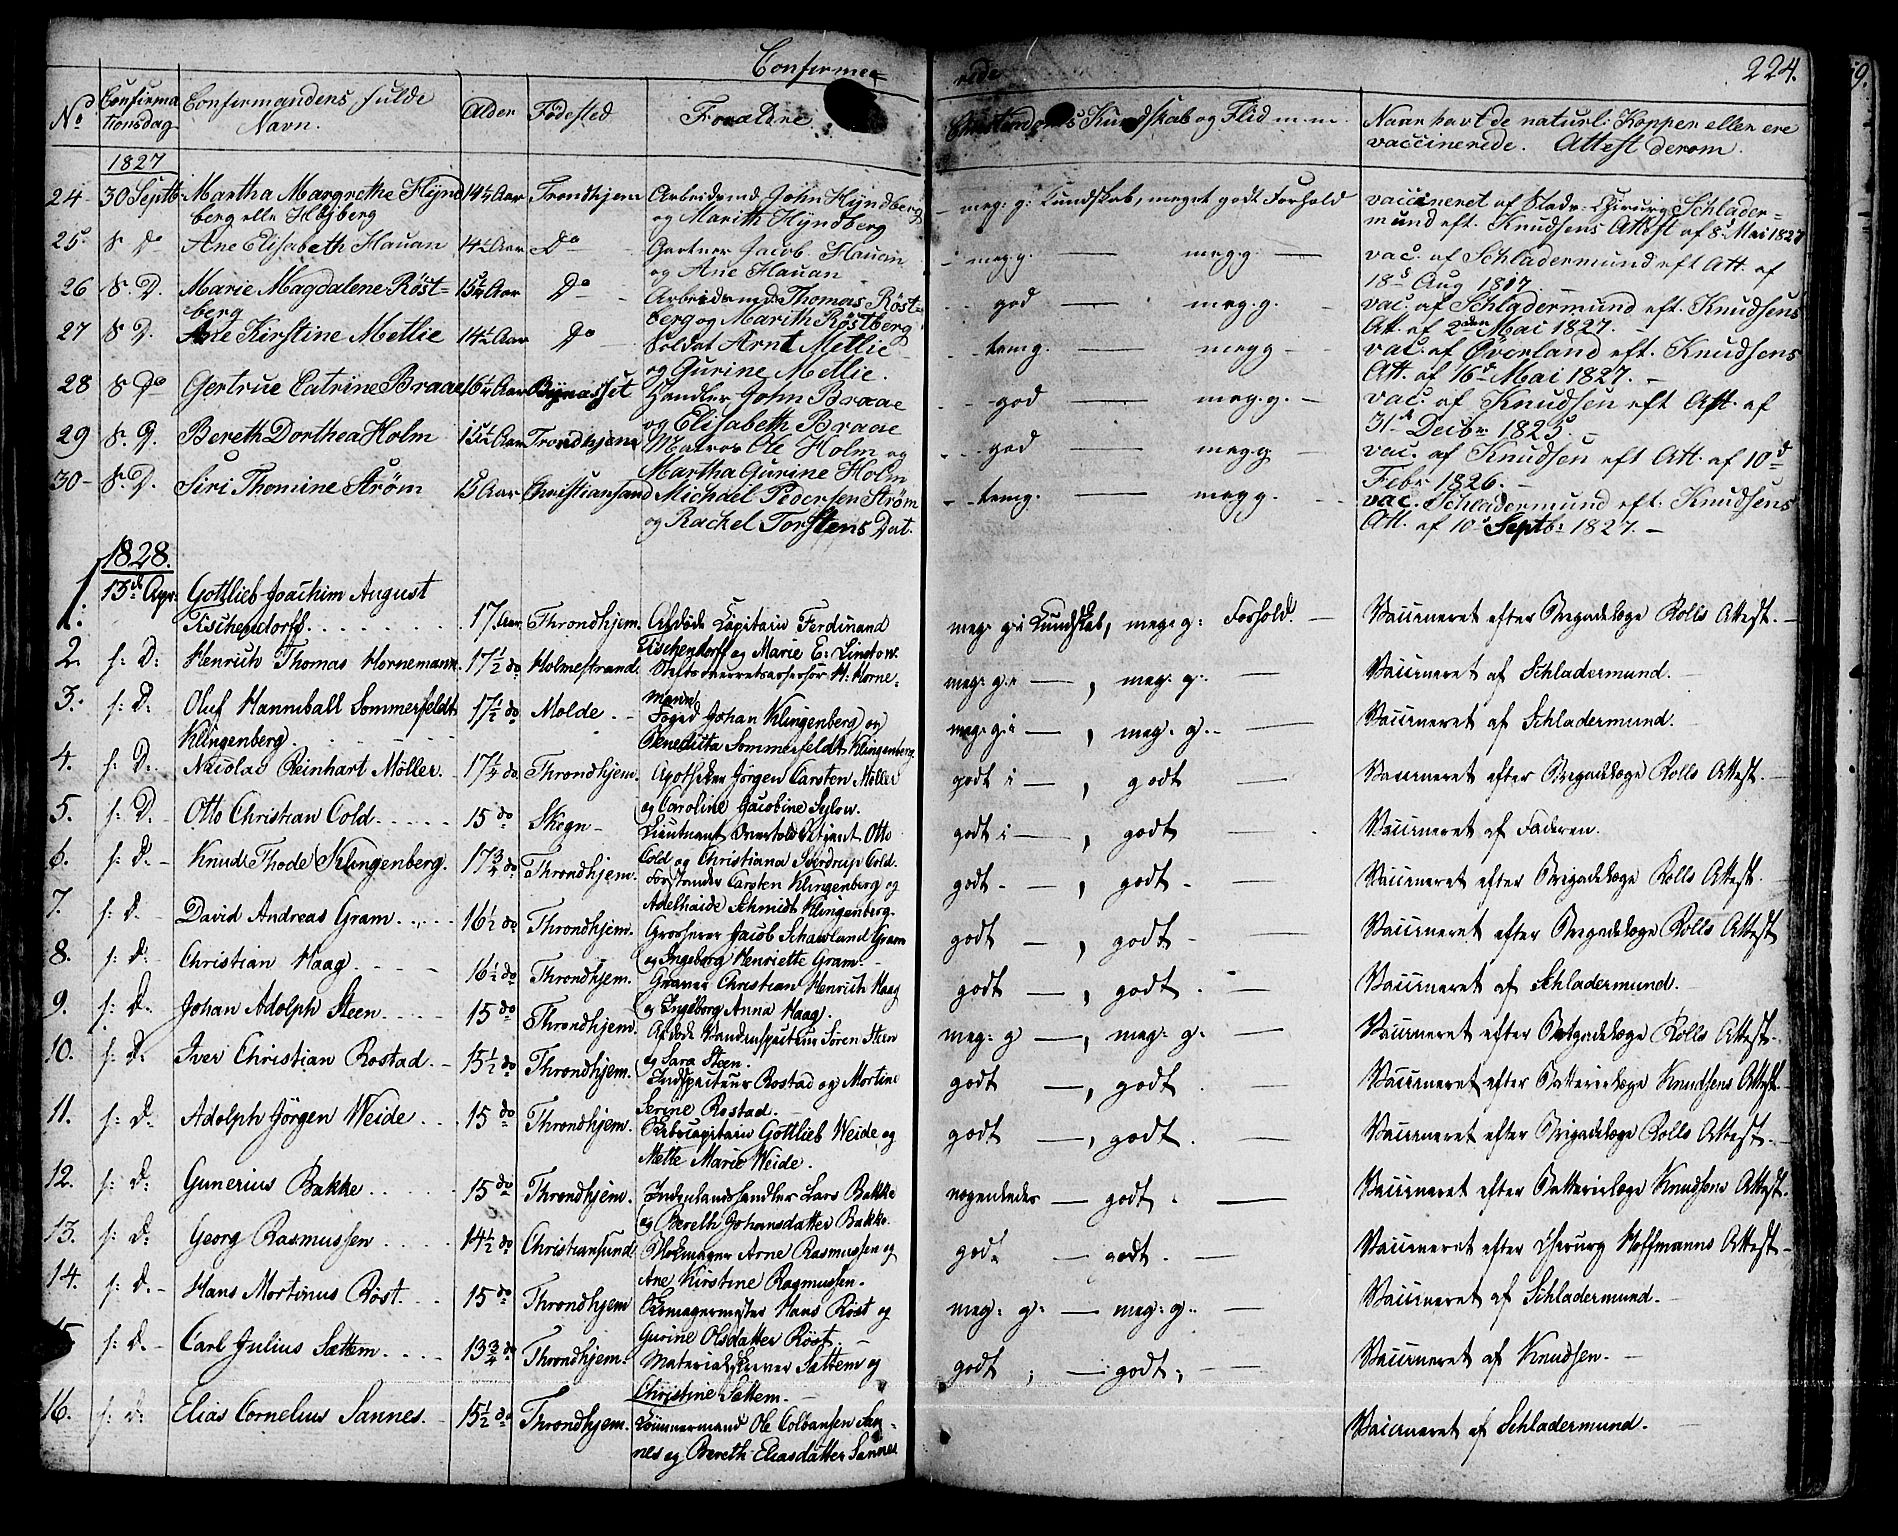 Confirme= rede 224.
No Confirma tionsdag Confirmandens fulde Navn. Alder Fødested Forældre Kundskab og Flid m.m. Naar havt de naturl: Kopper eller ere vaccinerede. Attest derom.
1827
24 30 Septb Martha Margrethe Hynd 14½ Aar Trondhjem Arbeidsmd John Hyndberg meg: g: Kundskab, meget godt Forhold vaccineret af Stads-Chirurg Schlader=
berg elle Høiberg og Marith Hyndberg mund eft. Knudsens Attest af 8de Mai 1827
25 S. Do Ane Elisabeth Hauan Aar Do Gartner Jacob Hauan meg g. — meg g. — vac. af Schladermund eft Att. af
og Ane Hauan 18d Aug 1817
26 S. D. Marie Magdalene Røst= Aar Do Arbeidsmd Thomas Røst= god — meg.g. vac. af Schladermund eft. Knudsens
berg berg og Marith Røstberg Att. af 2den Mai 1827.
27 S. D. Ane Kirstine Metlie Aar Do Soldat Arnt Metlie temg. — meg g vac. af Øverland eft. Knudsens
og Gurine Metlie. Att. af 16d Mai 1827.
28 S. Do Gertrue Catrine Braae Aar Bynæsset Handler John Braae god — meg.g. vac. af Knudsen eft Att. af
og Elisabeth Braae 31d Decbr 1825
29 S. D. Bereth Dorthea Holm Aar Trondhjem Matros Ole Holm og god — meg g vac. af Knudsen eft Att. af 10d
Martha Gurine Holm Febr 1826.
30 S. D. Siri Thomine Strøm 15 Aar Christiansand Michael Pedersen Strøm temg. — meg g. vac. Schladermund eft. Knudsens
og Rachel Torstens Dat. Att. af 10d Septb: 1827.
1828.
1. 13de Apr: Gottlieb Joachim August
Tischendorff 17 Aar Throndhjem. Afdøde Capitain Ferdinand meg: g: Kundskab, meg: g: Forhold. Vaccineret efter Brigadelæge Rolls Attest.
Tischendorff og Marie E: Lindow.
2. s: D: Henrich Thomas Hornemann 17½ do Holmestrand. Stiftsoverretsassessor H: Horne= meg: g: —, meg: g. — Vaccineret af Schladermund.
mann
3. s: D: Oluf Hanniball Sommerfeldt 17½ do Molde. Foged Johan Klingenberg og meg: g: —, meg: g. — Vaccineret af Schladermund.
Klingenberg. Benedicta Sommerfeldt Klingenberg.
4. s: D: Nicolai Reinhart Möller. do Throndhjem. Apotheker Jörgen Carsten Möller godt —, godt — Vaccineret efter Brigadelæge Rolls Attest.
og Caroline Jacobine Sylow.
5. s: D. Otto Christian Cold 15 do Skogn Lieutnant Otto godt —, godt — Vaccineret af Faderen.
Cold og Christiana Sverdrup Cold.
6. s: D. Knud Thode Klingenberg. 17¾ do Throndhjem. Forstander Carsten Klingenberg og godt —, godt — Vaccineret efter Brigadelæge Rolls Attest.
Adelhaide Schmidt Klingenberg.
7. s: D. David Andreas Gram 16½ do Throndhjem. Grosserer Jacob Schavland Gram godt —, godt — Vaccineret efter Brigadelæge Rolls Attest
og Ingeborg Henriette Gram
8. s: D: Christian Haag 16½ do Throndhjem. Graver Christian Henrich Haag godt —, godt. — Vaccineret af Schladermund.
og Ingeborg Anna Haag.
9. s: D: Johan Adolph Steen 15 do Throndhjem. Afdøde Søren Steen meg: g —, meg: g: — Vaccineret efter Brigadelæge Rolls Attest.
og Sara Steen.
10. s: D: Iver Christian Rostad 15½ do Throndhjem. Indspecteur Rostad og Mortine godt —, godt. — Vaccineret efter Batterielæge Knudsens Attest.
Serine Rostad.
11. s: D. Adolph Jörgen Weide 15 do Throndhjem. Gottlieb Weide og godt —, godt. — Vaccineret efter Brigadelæge Rolls Attest.
Mette Marie Weide.
12. s: D: Gunerius Bakke 15 do Throndhjem. Indenlandshandler Lars Bakke nogenledes — godt. — Vaccineret efter Batterielæge Knudsens Attest.
og Bereth Johansdatter Bakke.
13. s: D: Georg Rasmussen 14½ do Christiansund. Arne Rasmussen og godt — godt. — Vaccineret efter Chirurg Hoffmanns Attest
Ane Kirstine Rasmussen.
14. s: D. Hans Mortinus Röst 15 do Throndhjem Skomagermester Hans Röst og meg: g: — meg: g. — Vaccineret af Schladermund.
Gurine Olsdatter Röst.
s: D. Carl Julius Sættem 13¾ do Throndhjem. Materialskriver Sættem og godt — godt. — Vaccineret af Knudsen.
Christine Sættem.
16. s: D: Elias Cornelius Sannes. 15½ do Throndhjem. Tömmermand Ole Colbansen San= Vaccineret af Schladermund.
nes og Bereth Eliasdatter Sannes